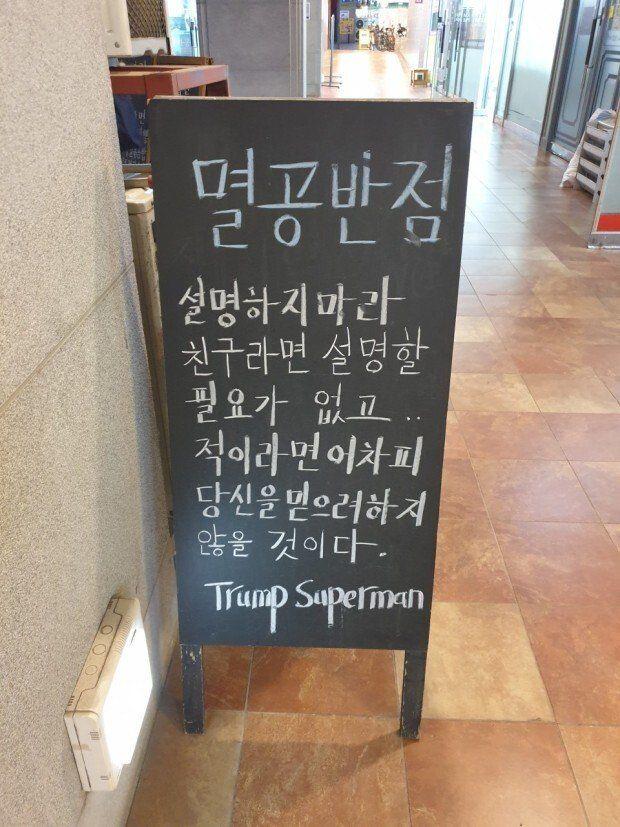 멸공반점
설명하지마라
친구라면 설명할
필요가 없고..
적이라면어차피
당신을믿으려하지
않을 것이다.
Trump Superman